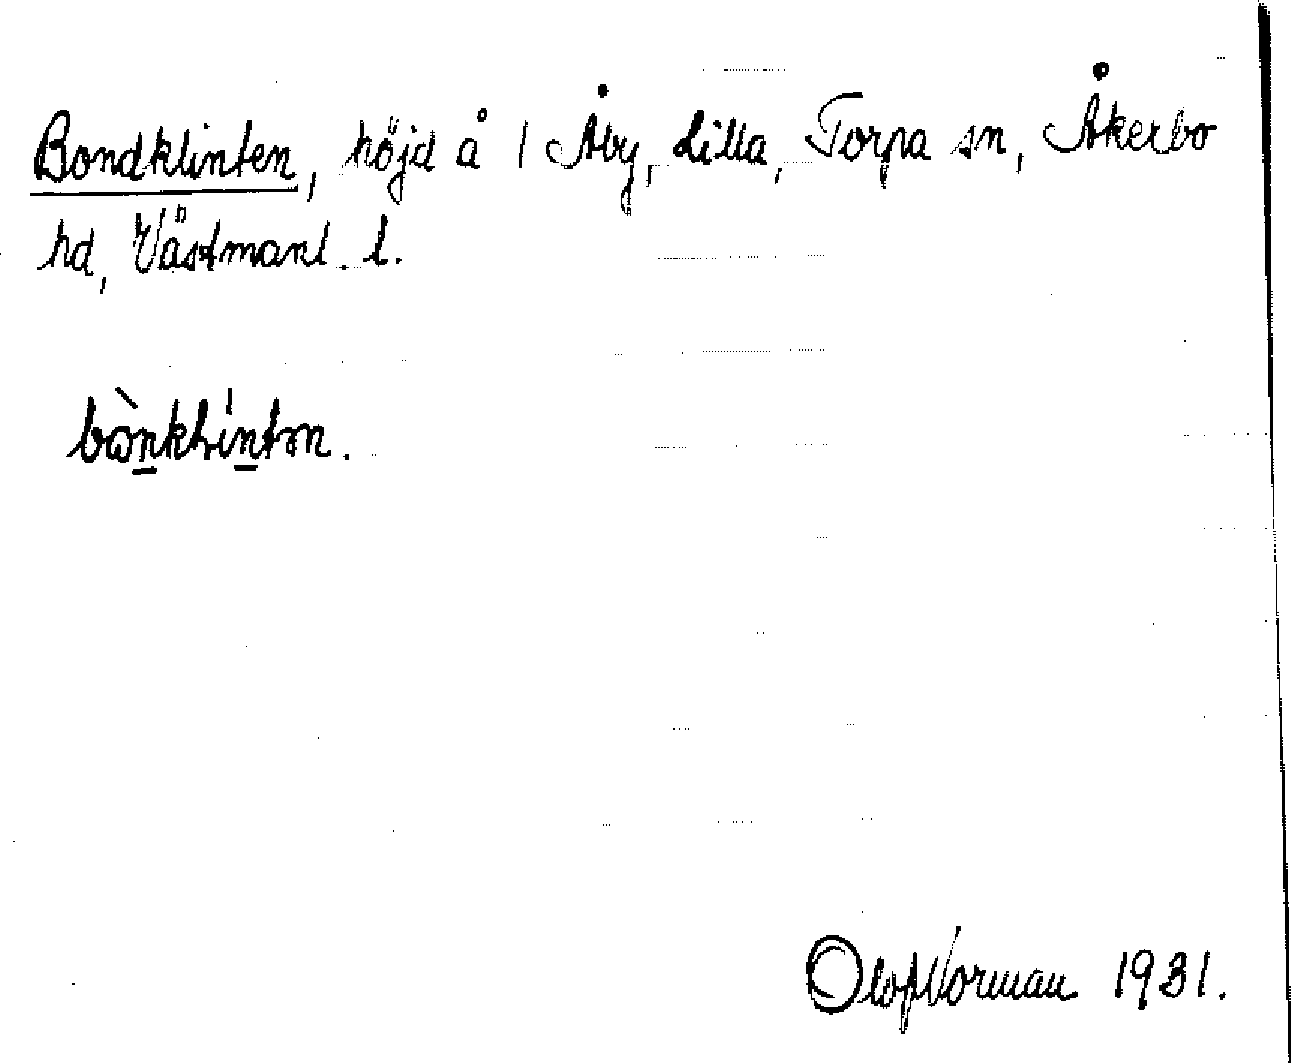 Bondklinten, höjd å 1 Åby, Lilla, Torpa sn, Åkerbo
hd, Västmanl. l.
Olof Norman 1931.